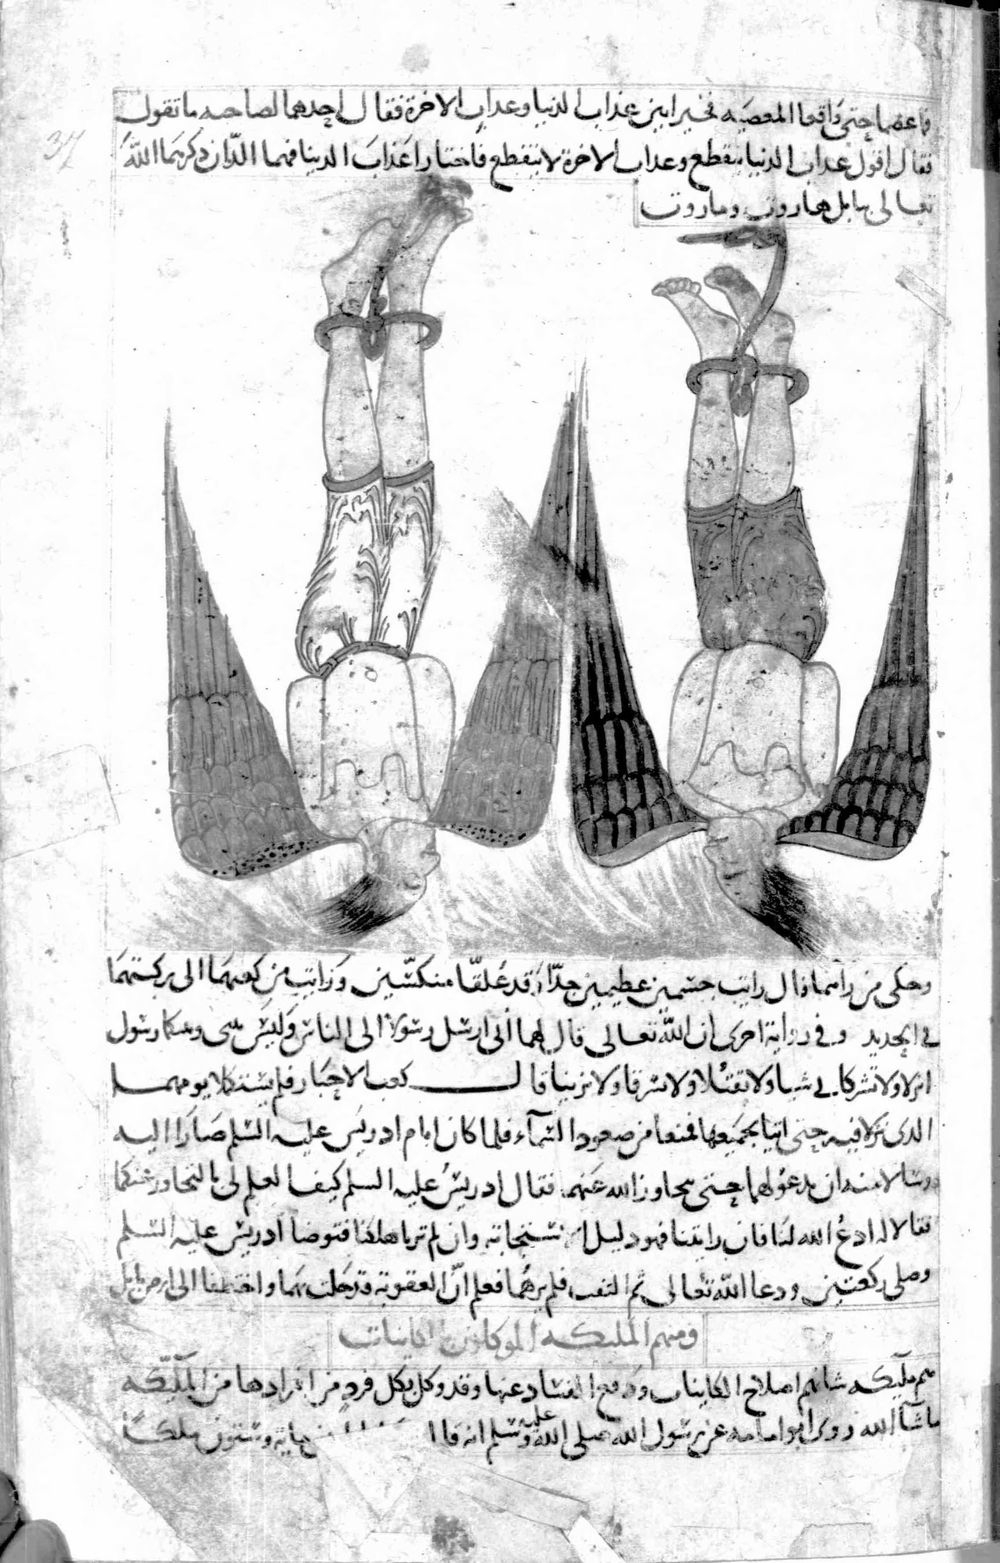 فاعلهما حتى واقعا المعصيه فخيرا بين عذاب الدنيا وعذاب الاخرة فقال احدهما لصاحبه ما تقول
فقال اقول عذاب الدنيا ينقطع وعذاب الاخرة لا ينقطع فاختارا عذاب الدنيا فهما اللذان ذكرهما الله
تعالى ببابل هاروت وماروت
37
وحكى من رآهما قال رايت جسمين عظيمين جدا قد عُلقا منكسين وزاتين من كعبهما الى ركبتهما
فى الحديد وفى رواية اخرى ان الله تعالى قال لهما انى ارسل رسولا الى الناس وليس بينى وبينكما رسول
انزلا ولا تشركا بى شيا ولا تقتلا ولا تسرقا ولا تزنيا قال كعب الاحبار فلم يستكملا يومهما
الذى نزلا فيه حتى اتيا بجميعها فمنعا من صعود السماء فلما كان ايام ادريس عليه السلم صارا اليه
وسالا منه ان يدعو لهما حتى يتجاوز الله عنهما فقال ادريس عليه السلم كيف العلم لى بالتجاوز عنكما
فقالا له ادعُ الله لنا فان رايتنا فهو دليل استجابته وان لم ترنا هلكنا فتوضا ادريس عليه السلم
وصلى ركعتين ودعا الله تعالى ثم التفت فلم يرهما فعلم انّ العقوبة قد حلت بهما واختطفا الى ارض بابل
ومنهم الملئكه الموكلون الكاينات
هم ملئكه شانهم اصلاح الكاينات ودفع الفساد عنها وقد وكل بكل فرد من افرادها من الملئكه
ما شآ الله روى ابو امامه عن رسول الله صلى الله عليه وسلم انه قال مايه وستون ملكا